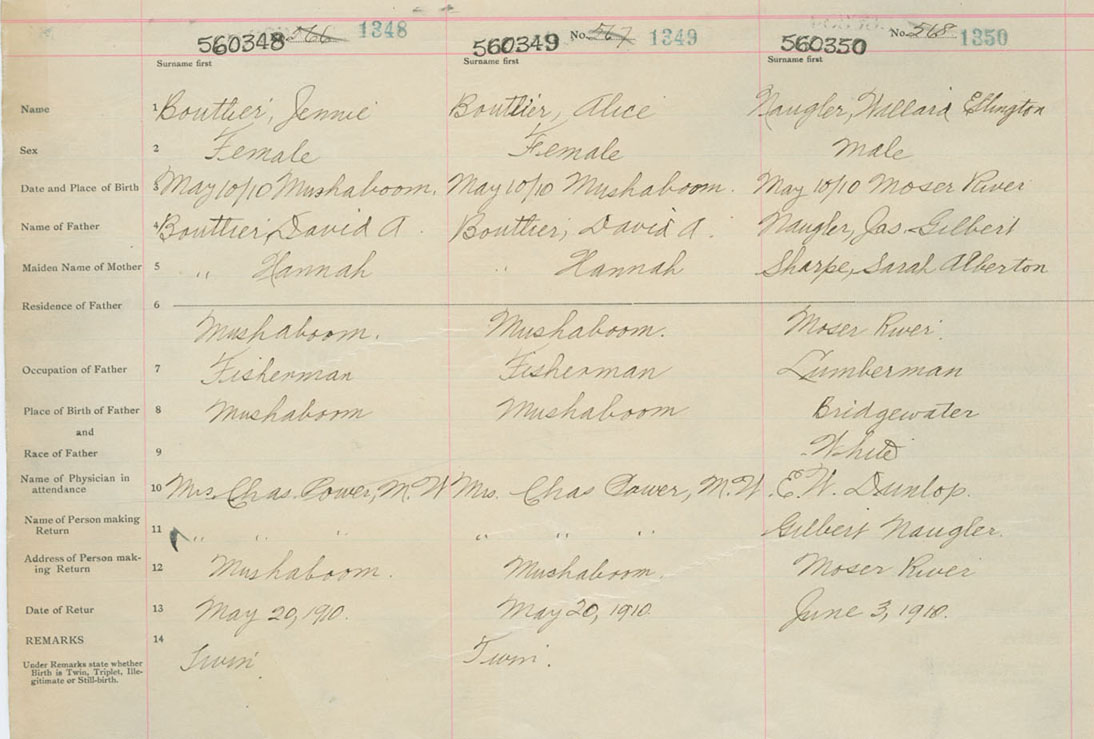 560348 566 1348 560349 No. 567 1349 560350 No. 568 1350
Surname first Surname first Surname first
Name 1 Bouttier, Jennie Bouttier, Alice Naugler, Willard Ellington
Sex 2 Female Female Male
Date and Place of Birth 3 May 10/10 Mushaboom. May 10/10 Mushaboom. May 10/10 Moser River
Name of Father 4 Bouttier, David A. Bouttier, David A. Naugler, Jas. Gilbert
Maiden Name of Mother 5 " Hannah " Hannah Sharpe, Sarah Alberton
Residence of Father 6
Mushaboom. Mushaboom. Moser River.
Occupation of Father 7 Fisherman Fisherman Lumberman
Place of Birth of Father 8 Mushaboom Mushaboom Bridgewater
and
Race of Father 9 White
Name of Physician in
attendance 10 Mrs. Chas. Power, M.W Mrs. Chas Power, M.W. E.W. Dunlop.
Name of Person making
Return 11 " " " " " " Gilbert Naugler.
Address of Person mak-
ing Return 12 Mushaboom. Mushaboom. Moser River
Date of Retur 13 May 20, 1910. May 20, 1910. June 3, 1910.
REMARKS 14
Twin Twin.
Under Remarks state whether
Birth is Twin, Triplet, Ille-
gitimate or Still-birth.